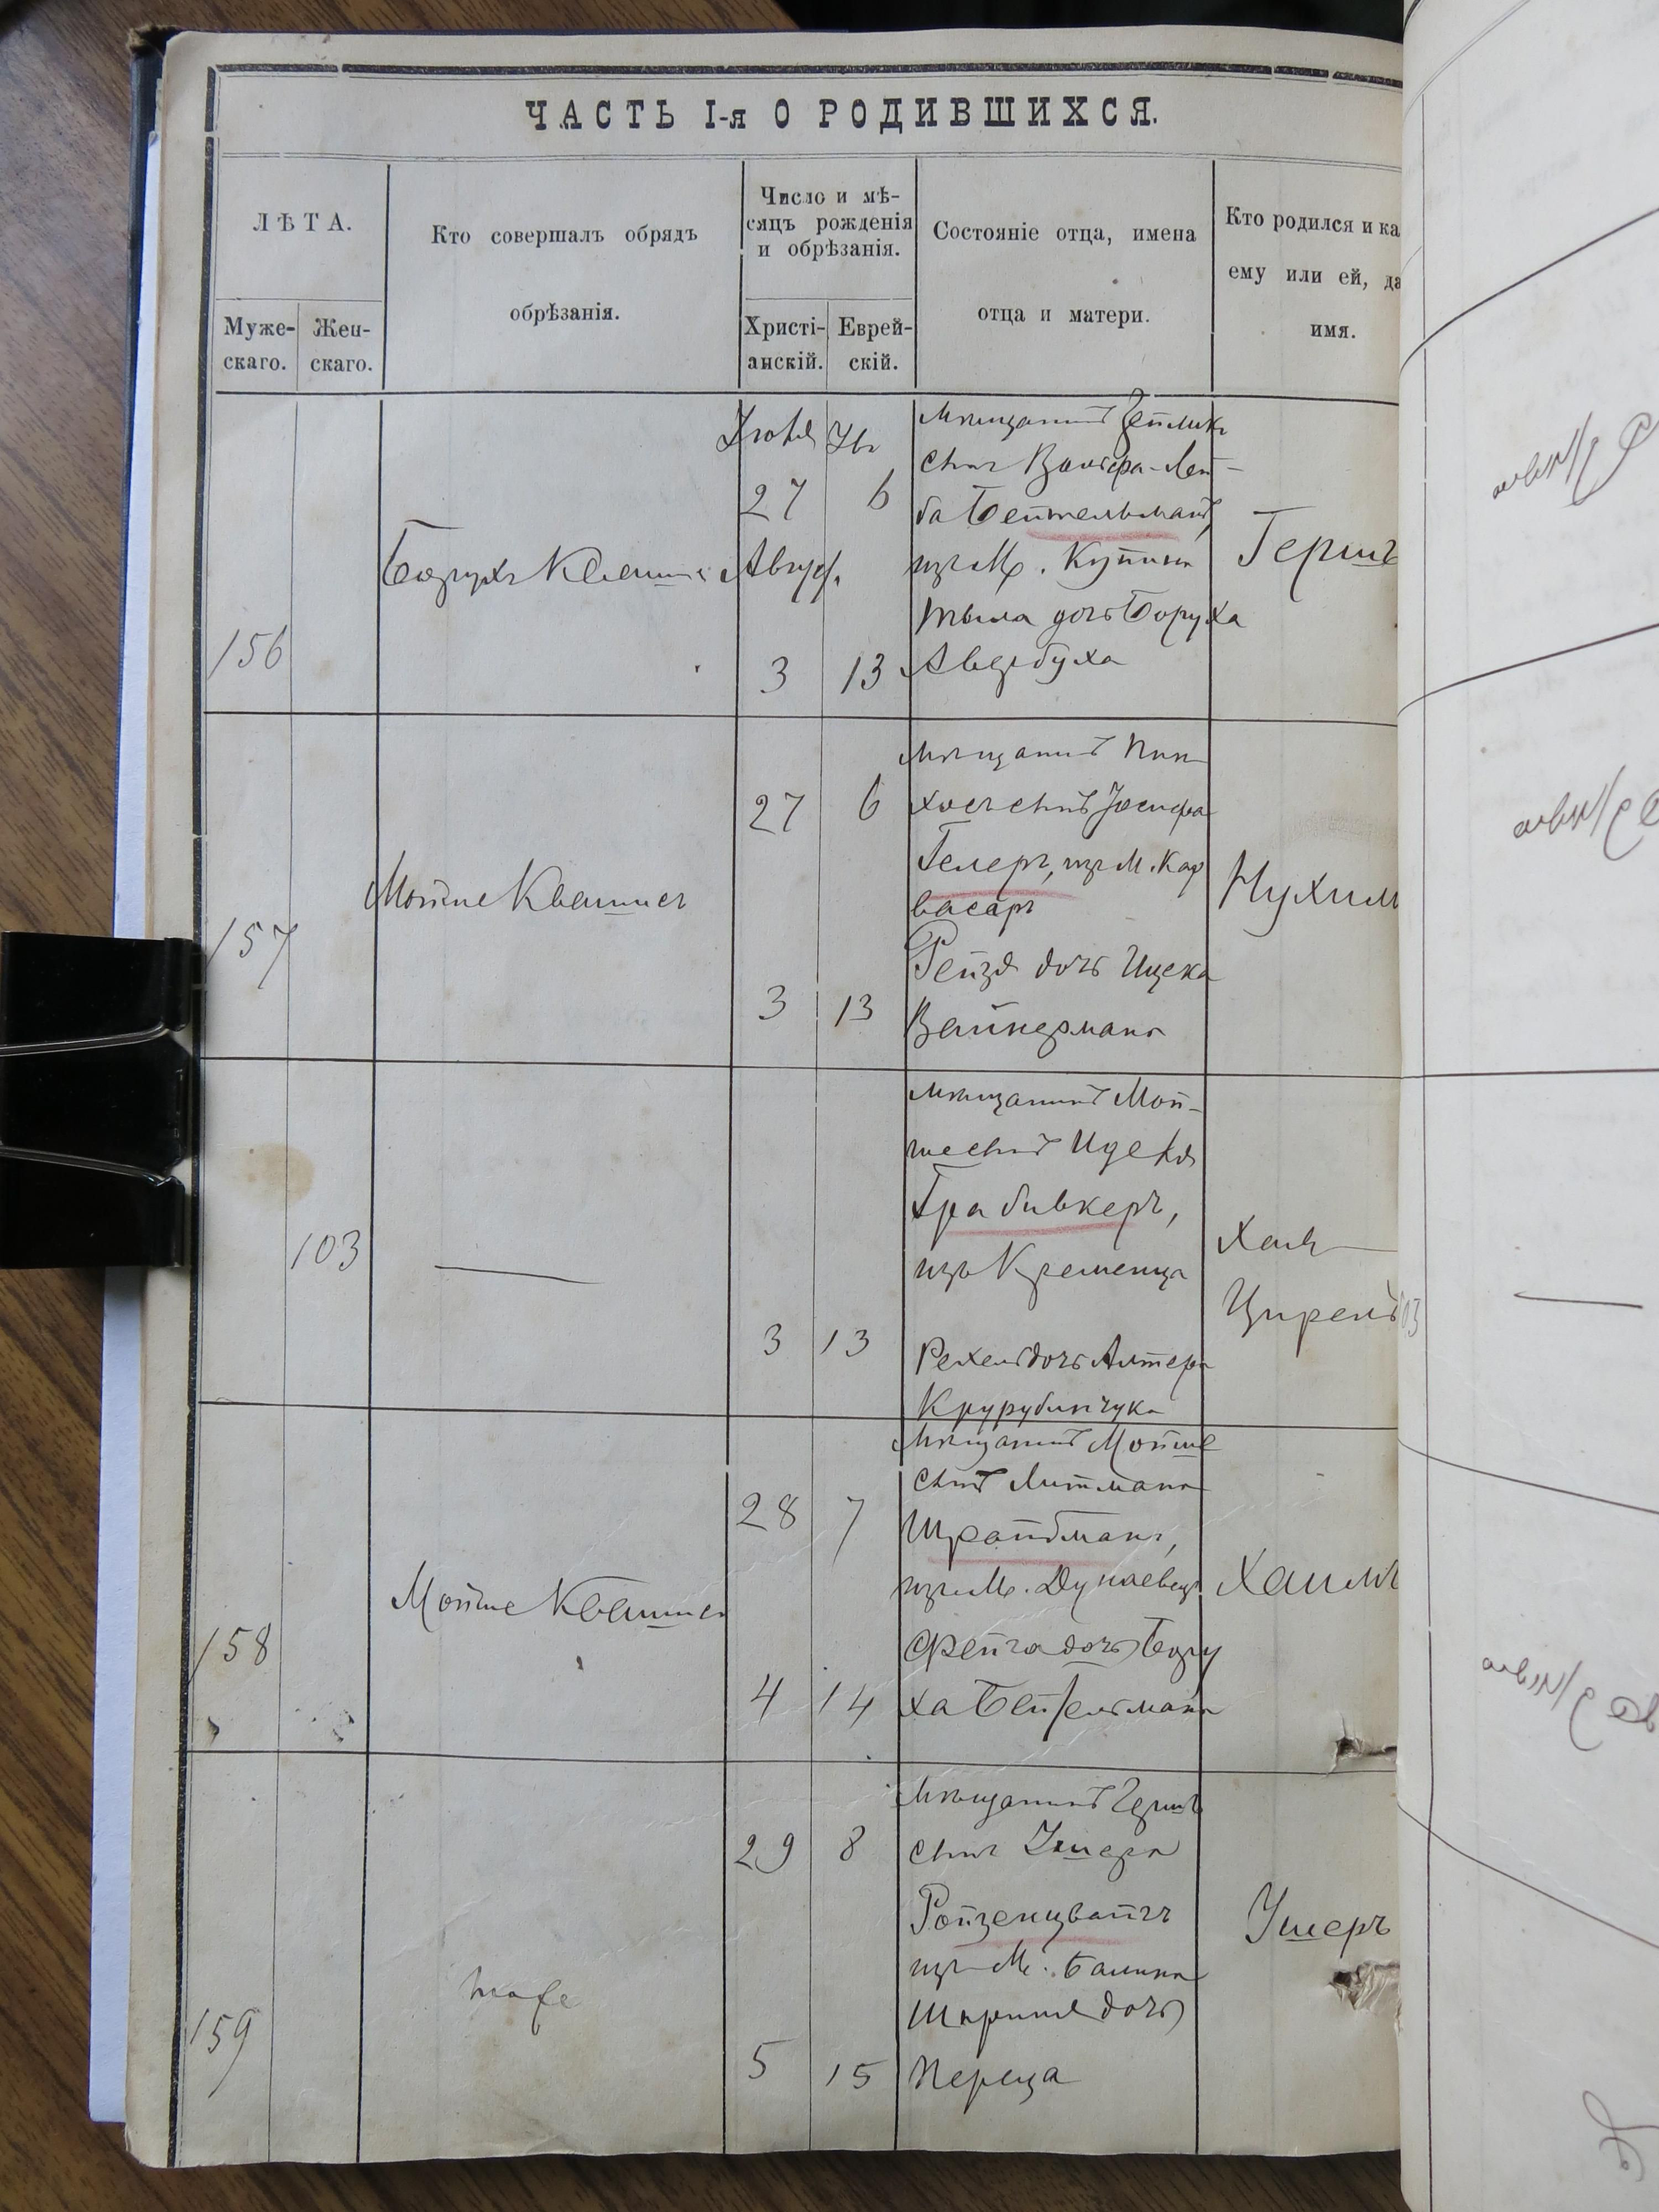 ЧАСТЬ I-я О РОДИВШИХСЯ.
ЛѢТА.
Муже-
скаго.
Жен-
скаго.
Кто совершалъ обрядъ
обрѣзанія.
Число и мѣ-
сяцъ рожденія
и обрѣзанія.
Христі-
анскій.
Еврей-
скій.
Состояніе отца, имена
отца и матери.
Кто родился и ка
ему или ей, да
имя.
156
Борухъ
Іюля
27
6
Август.
3
13
мѣщанинъ
сынъ Вольфа-Лей-
ба Бейтельманъ,
изъ М. Купина
дочь Боруха
Гершъ
157
Мойше Квашнеръ
27
6
3
13
мѣщанинъ Пин
хосъ сынъ Іосифа
Гелеръ, изъ М. Кар
васаръ
Рейзя дочь Ицека
Вайнермана
Нухим
103
3
13
мѣщанинъ Мой-
ше сынъ Иделя
Грабивкеръ,
изъ Кременца
Рехель дочь Алтера
Хая
Цирель
103
158
Мойше Квашнер
28
7
4
14
мѣщанинъ Мойше
сынъ Литмана
изъ М. Дунаевец
Фейга дочь Бору
ха Бейтельмана
Хаимъ
159
тоже
29
8
5
15
мѣщанинъ Гершъ
сынъ Ушера
Ройзенцвайгъ
изъ М. Балина
дочь
Переца
Ушеръ